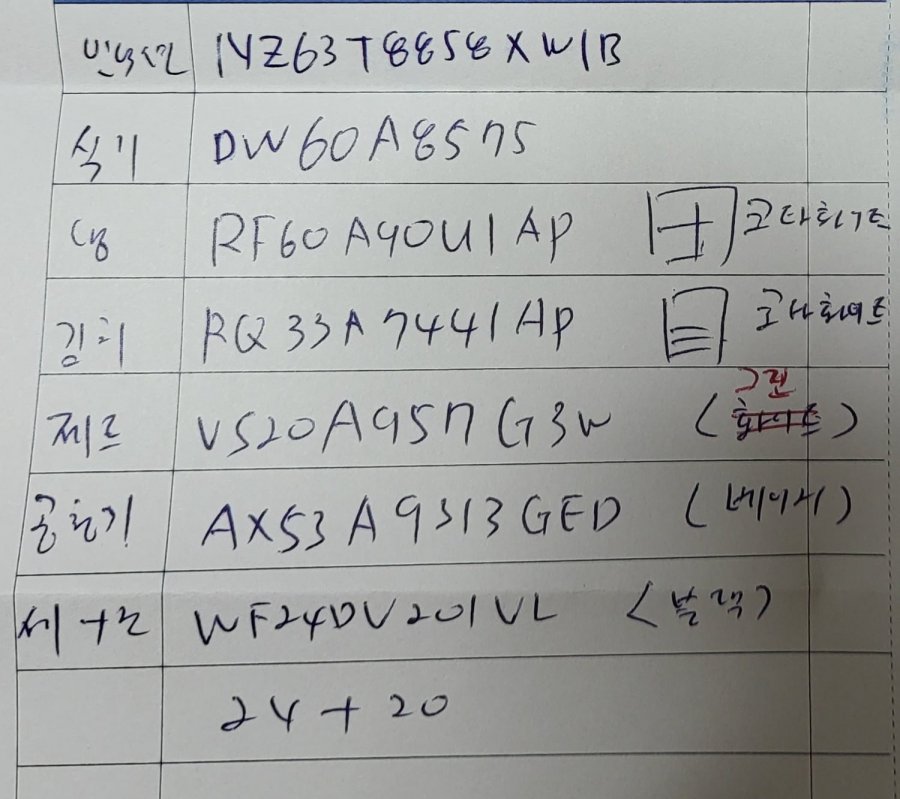 인덕션 NZ63T8858XW/B
식기 DW60A8575
냉 RF60A90U1AP 코타화이트
김치 RQ33A7441AP 코타화이트
제트 VS20A957G3W (그린)
공청기 AX53A9313GED (베이지)
세+건 WF24DV201VL (블랙)
24 + 20